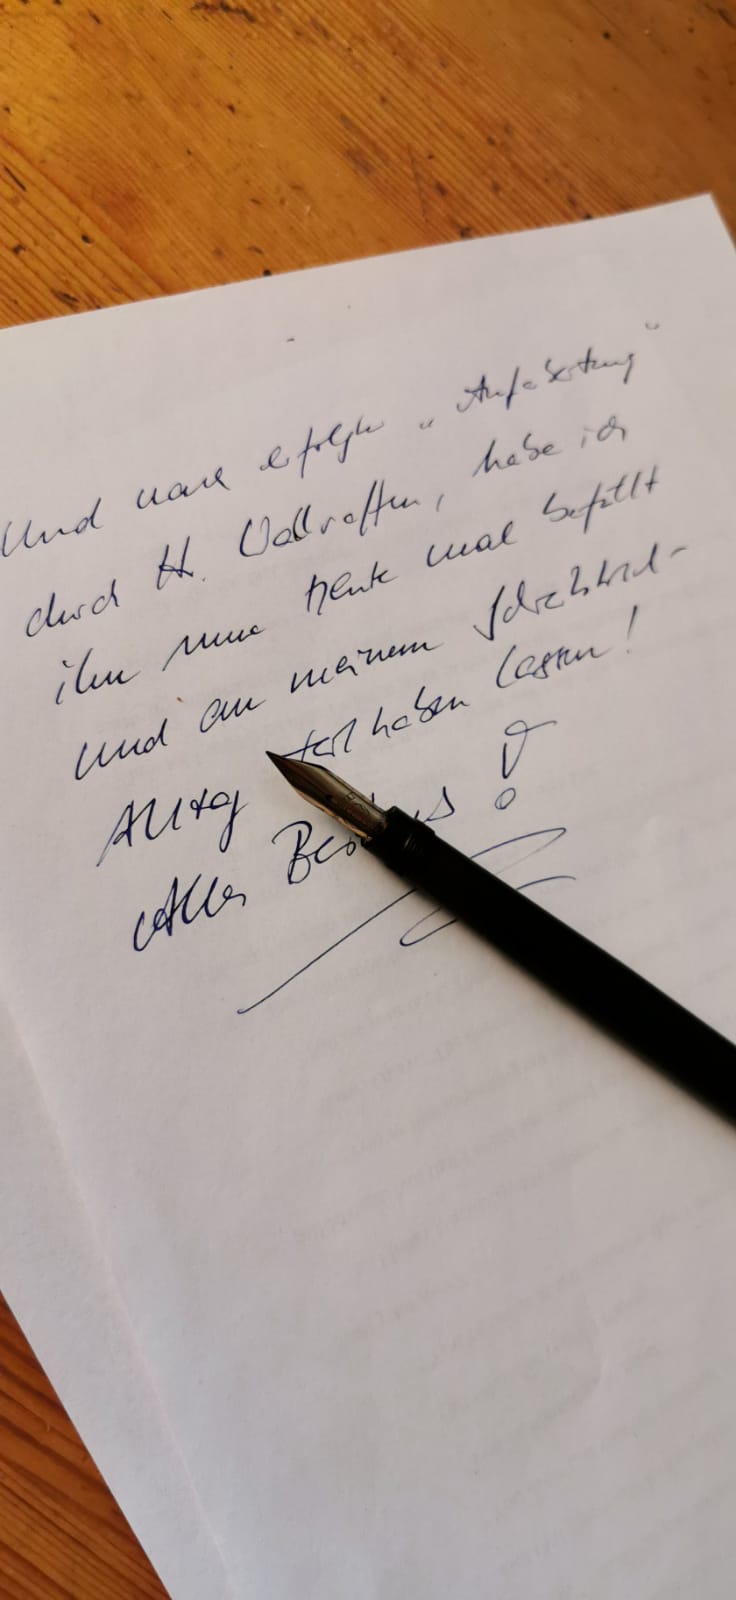 und nach erfolgter „Aufarbeitung“
durch H. Vollratten, habe ich
ihn nun heute mal befüllt
und an meinem Schreibtisch-
Alltag teilhaben lassen!
Alles